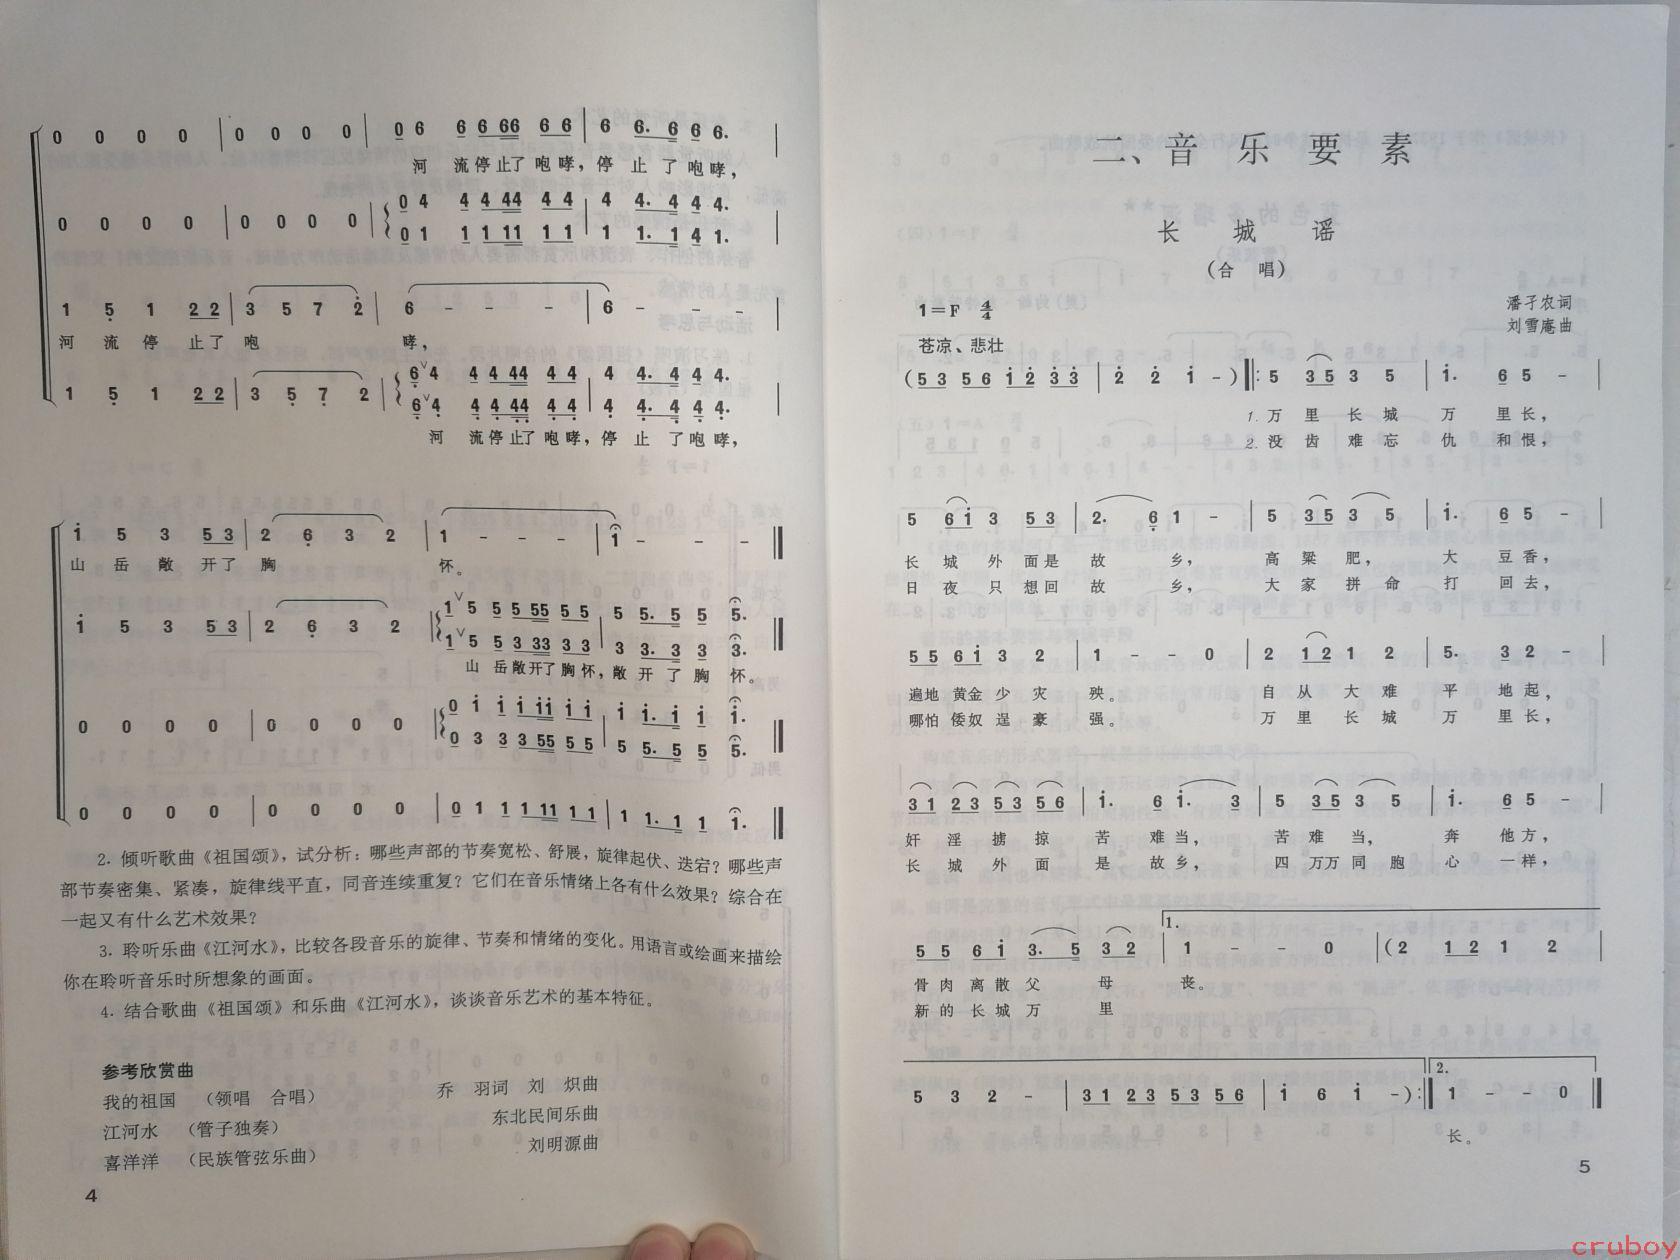 0 0 0 0 | 0 0 0 0 | 0 6 6 6 66 6 6 | 6 6. 6 6 6. |
河 流停止了咆哮，停 止 了咆哮，
0 0 0 0 | 0 0 0 0 | 0 4 4 4 44 4 4 | 4 4. 4 4 4. |
0 1 1 1 11 1 1 | 1 1. 1 4 1. |
1 5 1 2 2 | 3 5 7 2 | 6 - - - | 6 - - - |
河 流 停 止了 咆 哮，
1 5 1 2 2 | 3 5 7 2 | 6 4 4 4 44 4 4 | 4 4. 4 4 4. |
6 4 4 4 44 4 4 | 4 4. 4 4 4. |
河 流停止了咆哮，停 止 了咆哮，
1 5 3 5 3 | 2 6 3 2 | 1 - - - | 1 - - - ‖
山 岳 敞 开了 胸 怀。
1 5 3 5 3 | 2 6 3 2 | 1 5 5 5 55 5 5 | 5 5. 5 5 5. ‖
1 5 5 3 33 3 3 | 3 3. 3 3 3. ‖
山 岳敞开了胸怀，敞 开 了 胸 怀。
0 0 0 0 | 0 0 0 0 | 0 1 1 1 11 1 1 | 1 1. 1 1 1. ‖
0 3 3 3 55 5 5 | 5 5. 5 5 5. ‖
0 0 0 0 | 0 0 0 0 | 0 1 1 1 11 1 1 | 1 1. 1 1 1. ‖
2. 倾听歌曲《祖国颂》，试分析：哪些声部的节奏宽松、舒展，旋律起伏、迭宕？哪些声
部节奏密集、紧凑，旋律线平直，同音连续重复？它们在音乐情绪上各有什么效果？综合在
一起又有什么艺术效果？
3. 聆听乐曲《江河水》，比较各段音乐的旋律、节奏和情绪的变化。用语言或绘画来描绘
你在聆听音乐时所想象的画面。
4. 结合歌曲《祖国颂》和乐曲《江河水》，谈谈音乐艺术的基本特征。
参考欣赏曲
我的祖国 （领唱 合唱） 乔 羽词 刘 炽曲
江河水 （管子独奏） 东北民间乐曲
喜洋洋 （民族管弦乐曲） 刘明源曲
4
二、音 乐 要 素
长 城 谣
（合 唱）
1＝F 4/4
潘孑农词
刘雪庵曲
苍凉、悲壮
（5 3 5 6 1 2 3 3 | 2 2 1 -）‖: 5 3 5 3 5 | 1. 6 5 - |
1. 万 里 长 城 万 里长，
2. 没 齿 难 忘 仇 和恨，
5 6 1 3 5 3 | 2. 6 1 - | 5 3 5 3 5 | 1. 6 5 - |
长 城 外 面是 故 乡， 高 粱 肥， 大 豆香，
日 夜 只 想回 故 乡， 大 家 拼 命 打 回去，
5 5 6 1 3 2 | 1 - - 0 | 2 1 2 1 2 | 5. 3 2 - |
遍地 黄金 少 灾 殃。 自 从 大 难 平 地起，
哪怕 倭奴 逞 豪 强。 万 里 长 城 万 里长，
3 1 2 3 5 3 5 6 | 1. 6 1. 3 | 5 3 5 3 5 | 1. 6 5 - |
奸 淫 掳 掠 苦 难当， 苦 难 当， 奔 他方，
长 城 外 面 是 故乡， 四 万万 同 胞 心 一样，
5 5 6 1 3. 5 3 2 | 1. 1 - - 0 | （2 1 2 1 2 |
骨肉 离散 父 母 丧。
新的 长城 万 里
5 3 2 - | 3 1 2 3 5 3 5 6 | 1 6 1 -）:‖ 2. 1 - - 0 ‖
长。
5
cruboy